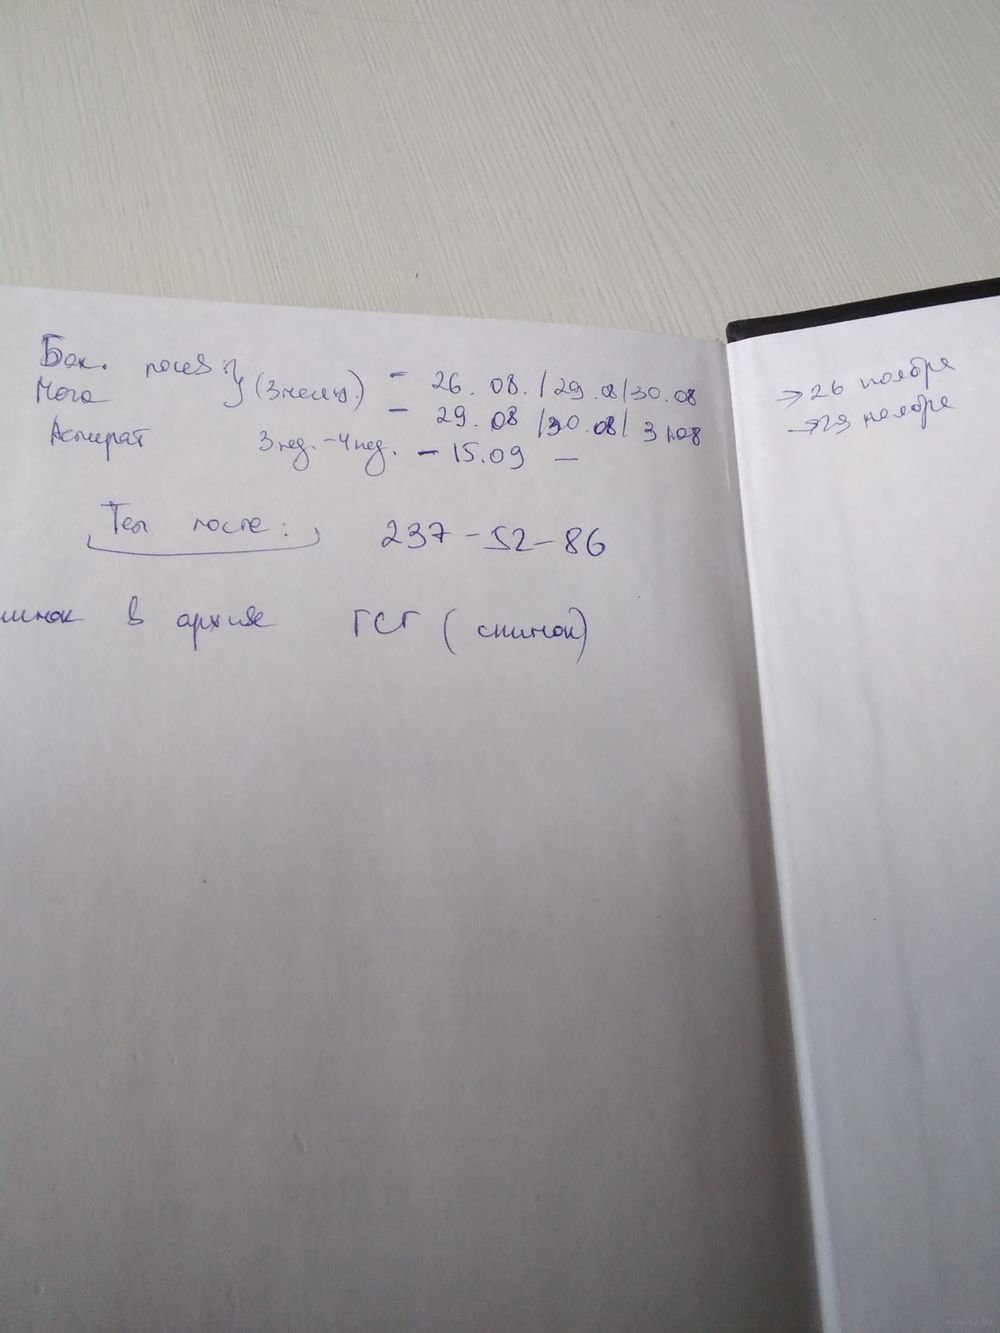 Бак. посев } (3 месяц.) - 26. 08. / 29. 08 / 30. 08 → 26 ноября
Моча - 29. 08 / 30. 08 / 3 ноя → 29 ноября
Аспират 3 нед. - 4 нед. - 15. 09 —
Тел после: 237 - 52 - 86
в архиве ГСГ (снимок)
www.ay.by